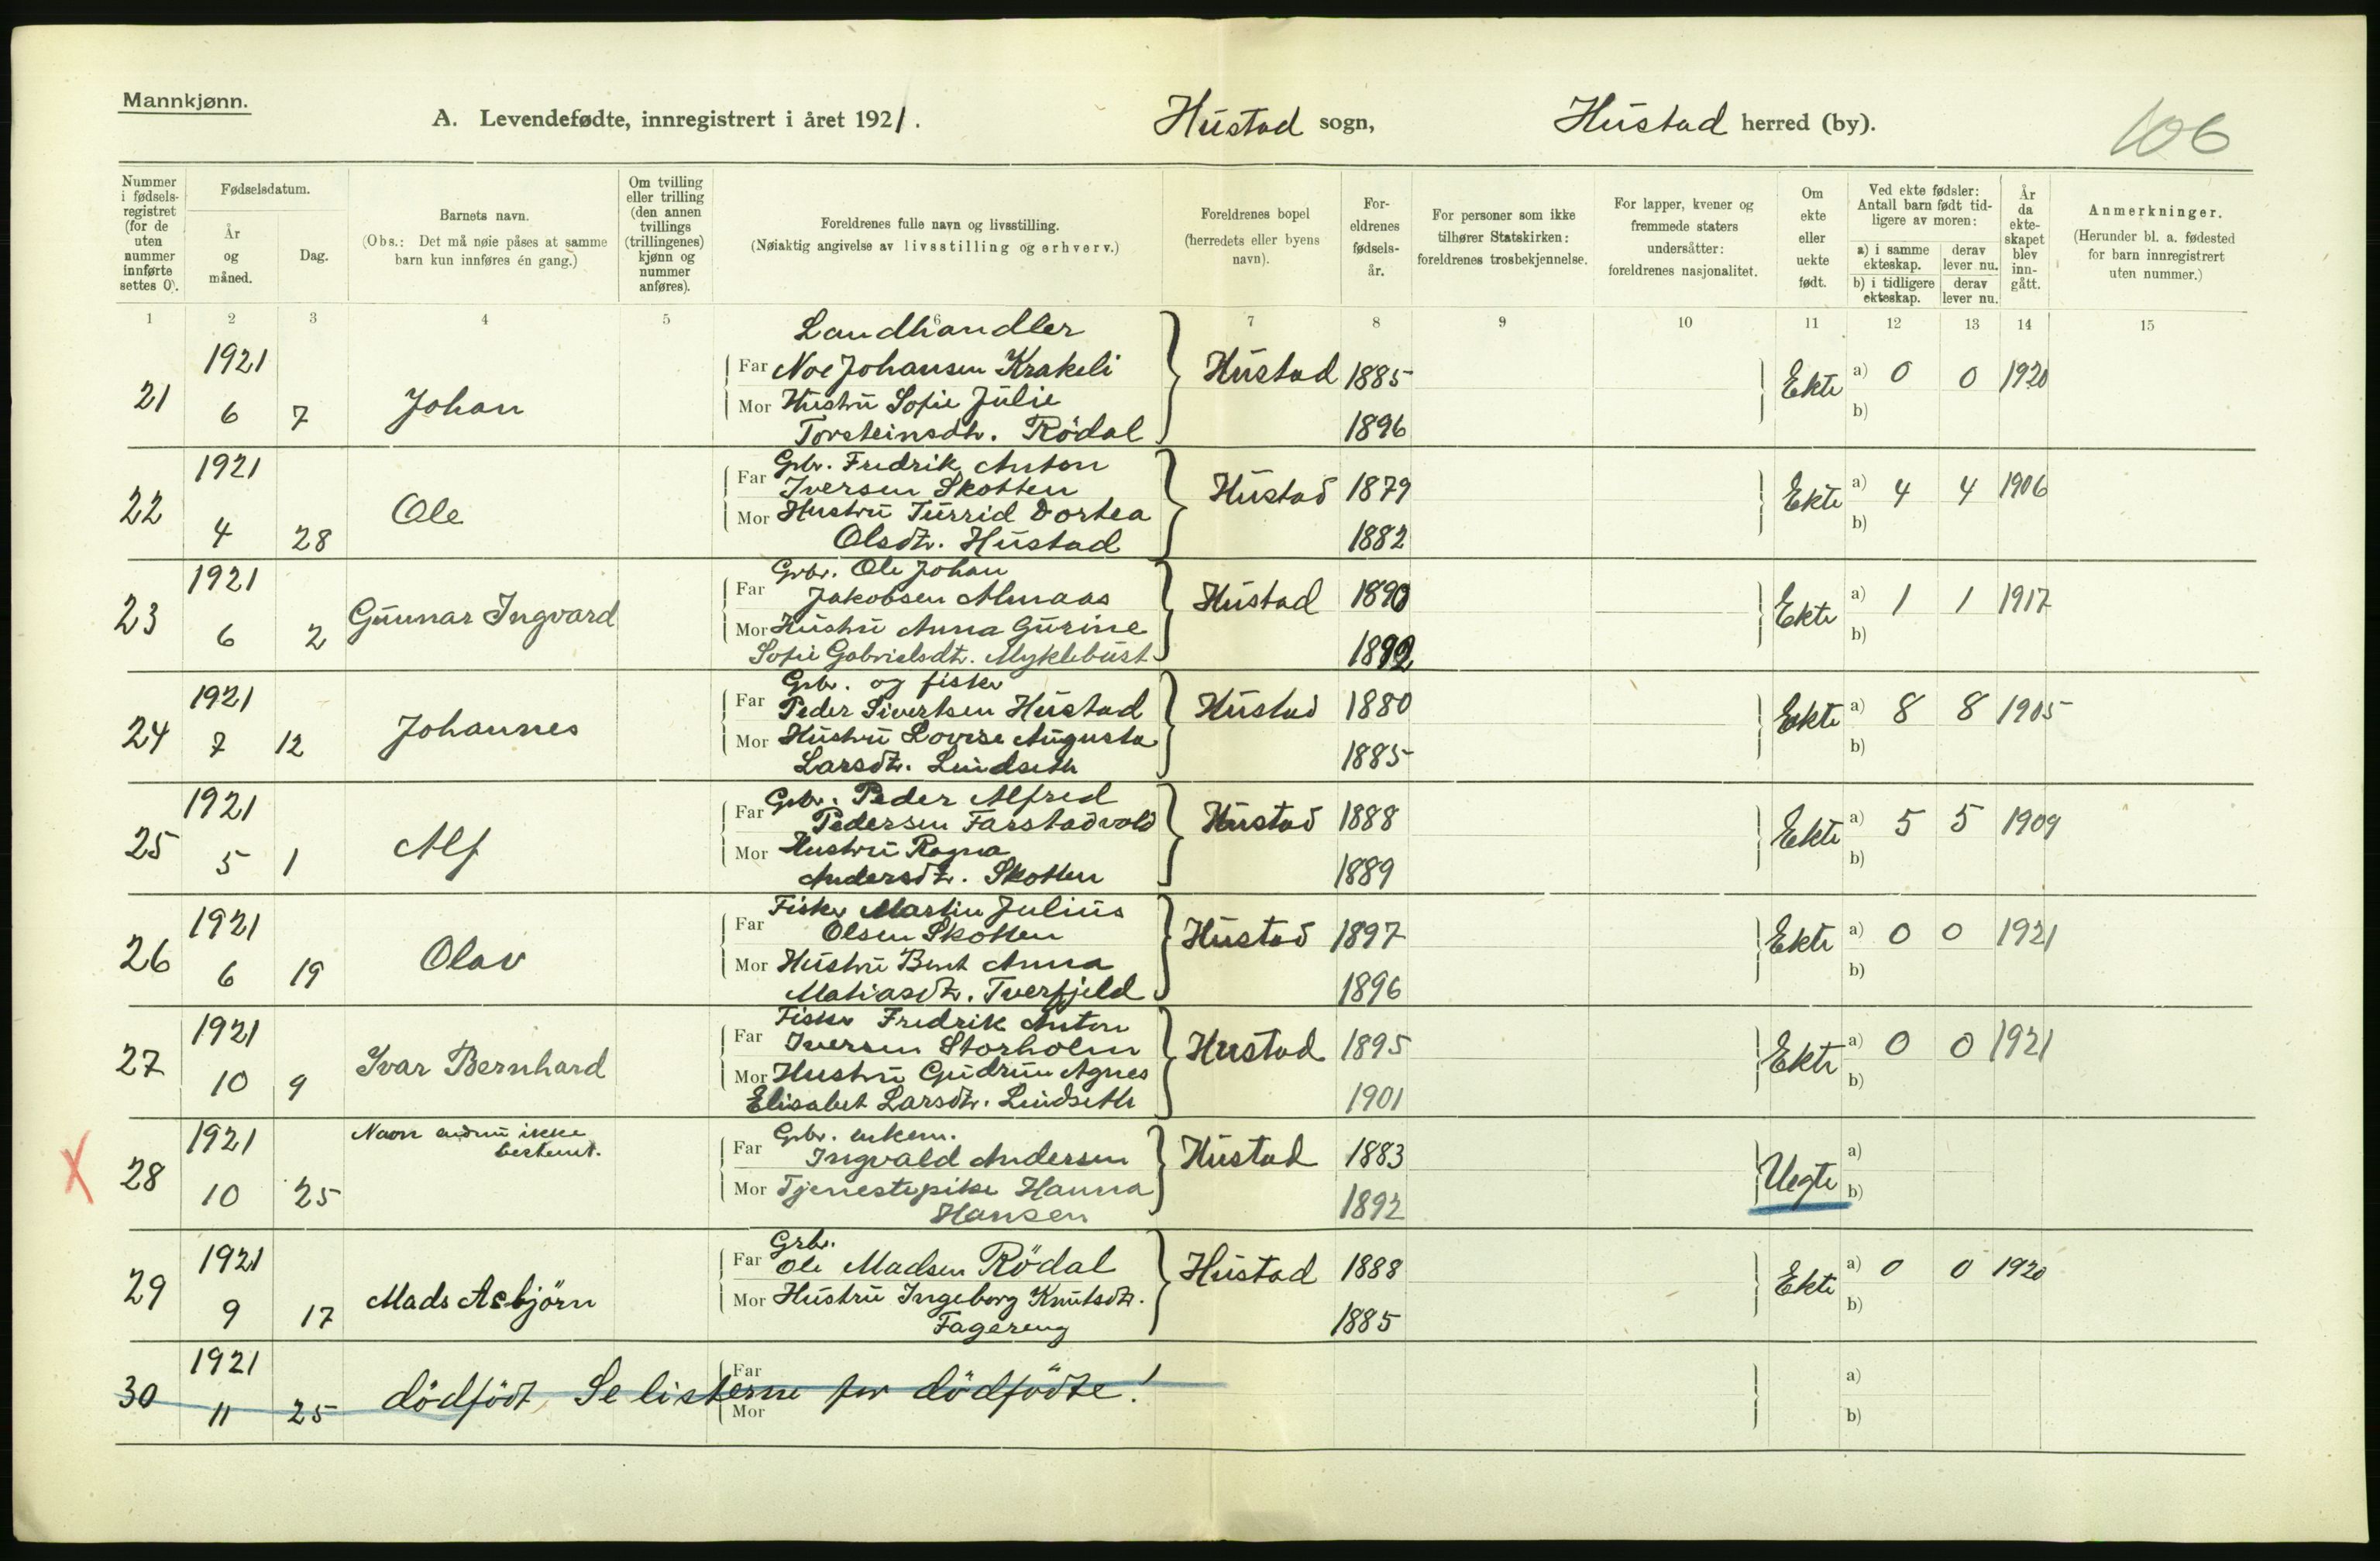 Mannkjønn.
A. Levendefødte, innregistrert i året 1921. Hustad sogn, Hustad herred (by). 106
Nummer i fødsels-registret (for de uten nummer innførte settes 0).
Fødselsdatum.
År og måned.
Dag.
Barnets navn.
(Obs.: Det må nøie påses at samme barn kun innføres én gang.)
Om tvilling eller trilling (den annen tvillings (trillingenes) kjønn og nummer anføres).
Foreldrenes fulle navn og livsstilling.
(Nøiaktig angivelse av livsstilling og erhverv.)
Foreldrenes bopel (herredets eller byens navn).
For-eldrenes fødsels-år.
For personer som ikke tilhører Statskirken: foreldrenes trosbekjennelse.
For lapper, kvener og fremmede staters undersåtter: foreldrenes nasjonalitet.
Om ekte eller uekte født.
Ved ekte fødsler: Antall barn født tid-ligere av moren:
a) i samme ekteskap. derav lever nu.
b) i tidligere ekteskap. derav lever nu.
År da ekte-skapet blev inn-gått.
Anmerkninger.
(Herunder bl. a. fødested for barn innregistrert uten nummer.)
1 2 3 4 5 6 7 8 9 10 11 12 13 14 15
Landhandler
21 1921 6 7 Johan Far Noe Johansen Krakeli Hustad 1885 Ekte a) 0 0 1920
Mor Hustru Sofie Julie b)
Torsteinsdtr. Rödal 1896
Gbr. Fredrik Anton
22 1921 4 28 Ole Far Iversen Skotten Hustad 1879 Ekte a) 4 4 1906
Mor Hustru Turrid Dortea b)
Olsdtr. Hustad 1882
Gbr. Ole Johan
23 1921 6 2 Gunnar Ingvard Far Jakobsen Almaas Hustad 1890 Ekte a) 1 1 1917
Mor Hustru Anna Gurine b)
Sofie Gabrielsdtr. Myklebust 1892
Gbr. og fisker
24 1921 7 12 Johannes Far Peder Sivertsen Hustad Hustad 1880 Ekte a) 8 8 1905
Mor Hustru Lovise Augusta b)
Larsdtr. Lindseth 1885
Gbr. Peder Alfred
25 1921 5 1 Alf Far Pedersen Farstadvold Hustad 1888 Ekte a) 5 5 1909
Mor Hustru Ragna b)
Andersdtr. Skotten 1889
Fisker Martin Julius
26 1921 6 19 Olav Far Olsen Skotten Hustad 1897 Ekte a) 0 0 1921
Mor Hustru Berit Anna b)
Matiasdtr. Tverfjeld 1896
Fisker Fredrik Anton
27 1921 10 9 Ivar Bernhard Far Iversen Storholm Hustad 1895 Ekte a) 0 0 1921
Mor Hustru Gudrun Agnes b)
Elisabet Larsdtr. Lindseth 1901
Navn endnu ikke bestemt.
Gbr. enkem.
X 28 1921 10 25 Far Ingvald Andersen Hustad 1883 Uegte a)
Mor Tjenestepike Hanna b)
Hansen 1892
Grbr.
29 1921 9 17 Mads Asbjörn Far Ole Madsen Rödal Hustad 1888 Ekte a) 0 0 1920
Mor Hustru Ingeborg Knutsdtr. b)
Fagereng 1885
30 1921 11 25 dödfödt, Se listerne for dödfödte! Far a)
Mor b)